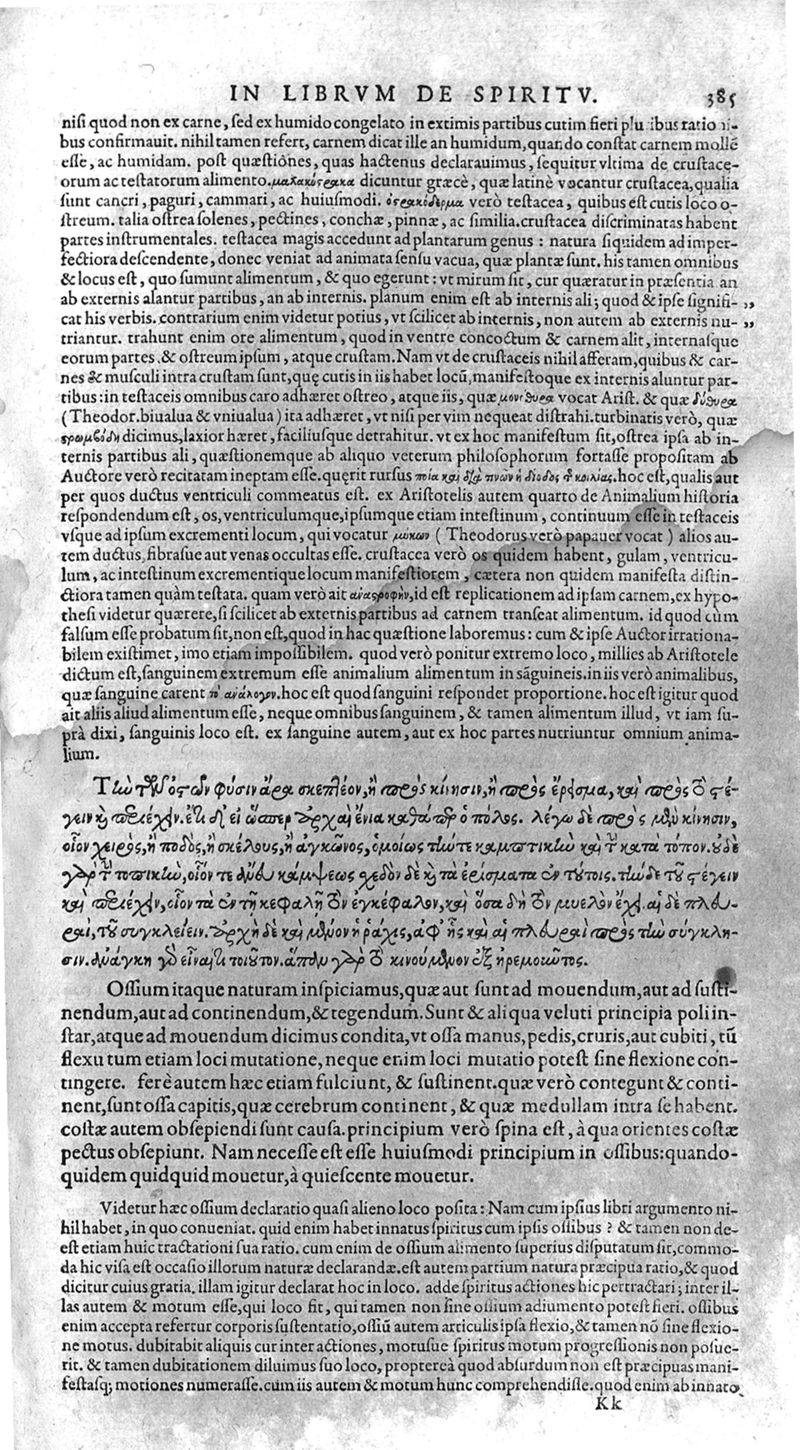 IN LIBRVM DE SPIRITV. 385
nisi quod non ex carne, sed ex humido congelato in extimis partibus cutim fieri plu ibus ratio ni-
bus confirmauit. nihil tamen refert, carnem dicat ille an humidum, quando constat carnem mollē
esse, ac humidam. post quæstiōnes, quas hactenus declarauimus, sequitur vltima de crustace-
orum ac testatorum alimento. μαλακόστρακα dicuntur græcè, quæ latinè vocantur crustacea, qualia
sunt cancri, paguri, cammari, ac huiusmodi. ὀστρακόδερμα verò testacea, quibus est cutis loco o-
streum. talia ostrea solenes, pectines, conchæ, pinnæ, ac similia. crustacea discriminatas habent
partes instrumentales. testacea magis accedunt ad plantarum genus : natura siquidem ad imper-
fectiora descendente, donec veniat ad animata sensu vacua, quæ plantæ sunt. his tamen omnibus
& locus est, quo sumunt alimentum, & quo egerunt : vt mirum sit, cur quæratur in præsentia an
ab externis alantur partibus, an ab internis. planum enim est ab internis ali; quod & ipse signifi- „
cat his verbis. contrarium enim videtur potius, vt scilicet ab internis, non autem ab externis nu- „
triantur. trahunt enim ore alimentum, quod in ventre concoctum & carnem alit, internasque
eorum partes. & ostreum ipsum, atque crustam. Nam vt de crustaceis nihil afferam, quibus & car-
nes & musculi intra crustam sunt, quę cutis in iis habet locū, manifestoque ex internis aluntur par-
tibus: in testaceis omnibus caro adhæret ostreo, atque iis, quæ μονόθυρα vocat Arist. & quæ δίθυρα
(Theodor. biualua & vniualua) ita adhæret, vt nisi per vim nequeat distrahi. turbinatis verò, quæ
στρομβώδη dicimus, laxior hæret, faciliusque detrahitur. vt ex hoc manifestum sit, ostrea ipsa ab in-
ternis partibus ali, quæstionemque ab aliquo veterum philosophorum fortasse propositam ab
Auctore verò recitatam ineptam esse. quęrit rursus ποία καὶ διὰ τίνων ἡ δίοδος ἐκ κοιλίας. hoc est, qualis aut
per quos ductus ventriculi commeatus est. ex Aristotelis autem quarto de Animalium historia
respondendum est, os, ventriculumque, ipsumque etiam intestinum, continuum esse in testaceis
vsque ad ipsum excrementi locum, qui vocatur μήκων ( Theodorus verò papauer vocat ) alios au-
tem ductus, fibrasue aut venas occultas esse. crustacea verò os quidem habent, gulam, ventricu-
lum, ac intestinum excrementique locum manifestiorem, cætera non quidem manifesta distin-
ctiora tamen quàm testata. quam verò ait ἀναστροφὴν, id est replicationem ad ipsam carnem, ex hypo-
thesi videtur quærere, si scilicet ab externis partibus ad carnem transeat alimentum. id quod cùm
falsum esse probatum sit, non est, quod in hac quæstione laboremus : cum & ipse Auctor irrationa-
bilem existimet, imo etiam impossibilem. quod verò ponitur extremo loco, millies ab Aristotele
dictum est, sanguinem extremum esse animalium alimentum in sāguineis. in iis verò animalibus,
quæ sanguine carent τὸ ἀνάλογον. hoc est quod sanguini respondet proportione. hoc est igitur quod
ait aliis aliud alimentum esse, neque omnibus sanguinem, & tamen alimentum illud, vt iam su-
prà dixi, sanguinis loco est. ex sanguine autem, aut ex hoc partes nutriuntur omnium anima-
lium.
Τὴν τῶν ὀστῶν φύσιν ἆρα σκεπτέον, ἢ πρὸς κίνησιν, ἢ πρὸς ἔρεισμα, καὶ πρὸς τὸ στέ-
γειν καὶ περιέχειν. ἔτι δὴ εἰ ὥσπερ ἀρχαὶ ἔνια καθάπερ ὁ πόλος. λέγω δὲ πρὸς μὲν κίνησιν,
οἷον χειρὸς, ἢ ποδὸς, ἢ σκέλους, ἢ ἀγκῶνος, ὁμοίως τήν τε καμπτικὴν καὶ τὴν κατὰ τόπον. οὐδὲ
γὰρ τὴν τοπικὴν, οἷόν τε ἄνευ κάμψεως σχεδὸν δὲ καὶ τὰ ἐρείσματα ἐν τούτοις. τὴν δὲ τοῦ στέγειν
καὶ περιέχειν, οἷον τὰ ἐν τῇ κεφαλῇ τὸν ἐγκέφαλον, καὶ ὅσα δὴ τὸν μυελὸν ἔχει. αἱ δὲ πλευ-
ραὶ, τοῦ συγκλείειν. ἀρχὴ δὲ καὶ μένον ἡ ῥάχις, ἀφ' ἧς καὶ αἱ πλευραὶ πρὸς τὴν σύγκλη-
σιν. ἀνάγκη γὸ εἶναί τι τοιοῦτον. ἅπαν γὰρ τὸ κινούμενον ἐξ ἠρεμοῦντος.
Ossium itaque naturam inspiciamus, quæ aut sunt ad mouendum, aut ad susti-
nendum, aut ad continendum, & tegendum. Sunt & aliqua veluti principia poli in-
star, atque ad mouendum dicimus condita, vt ossa manus, pedis, cruris, aut cubiti, tū
flexu tum etiam loci mutatione, neque enim loci mutatio potest sine flexione con-
tingere. ferè autem hæc etiam fulciunt, & sustinent. quæ verò contegunt & conti-
nent, sunt ossa capitis, quæ cerebrum continent, & quæ medullam intra se habent.
costæ autem obsepiendi sunt causa. principium verò spina est, à qua orientes costæ
pectus obsepiunt. Nam necesse est esse huiusmodi principium in ossibus: quando-
quidem quidquid mouetur, à quiescente mouetur.
Videtur hæc ossium declaratio quasi alieno loco posita : Nam cum ipsius libri argumento ni-
hil habet, in quo conueniat. quid enim habet innatus spiritus cum ipsis ossibus ? & tamen non de-
est etiam huic tractationi sua ratio. cum enim de ossium alimento superius disputatum sit, commo-
da hic visa est occasio illorum naturæ declarandæ. est autem partium natura præcipua ratio, & quod
dicitur cuius gratia. illam igitur declarat hoc in loco. adde spiritus actiones hic pertractari ; inter il-
las autem & motum esse, qui loco fit, qui tamen non sine ossium adiumento potest fieri. ossibus
enim accepta refertur corporis sustentatio, ossiū autem articulis ipsa flexio, & tamen nō sine flexio-
ne motus. dubitabit aliquis cur inter actiones, motusue spiritus motum progressionis non posue-
rit. & tamen dubitationem diluimus suo loco, proptereà quod absurdum non est præcipuas mani-
festasq; motiones numerasse. cum iis autem & motum hunc comprehendisse. quod enim ab innato
Kk